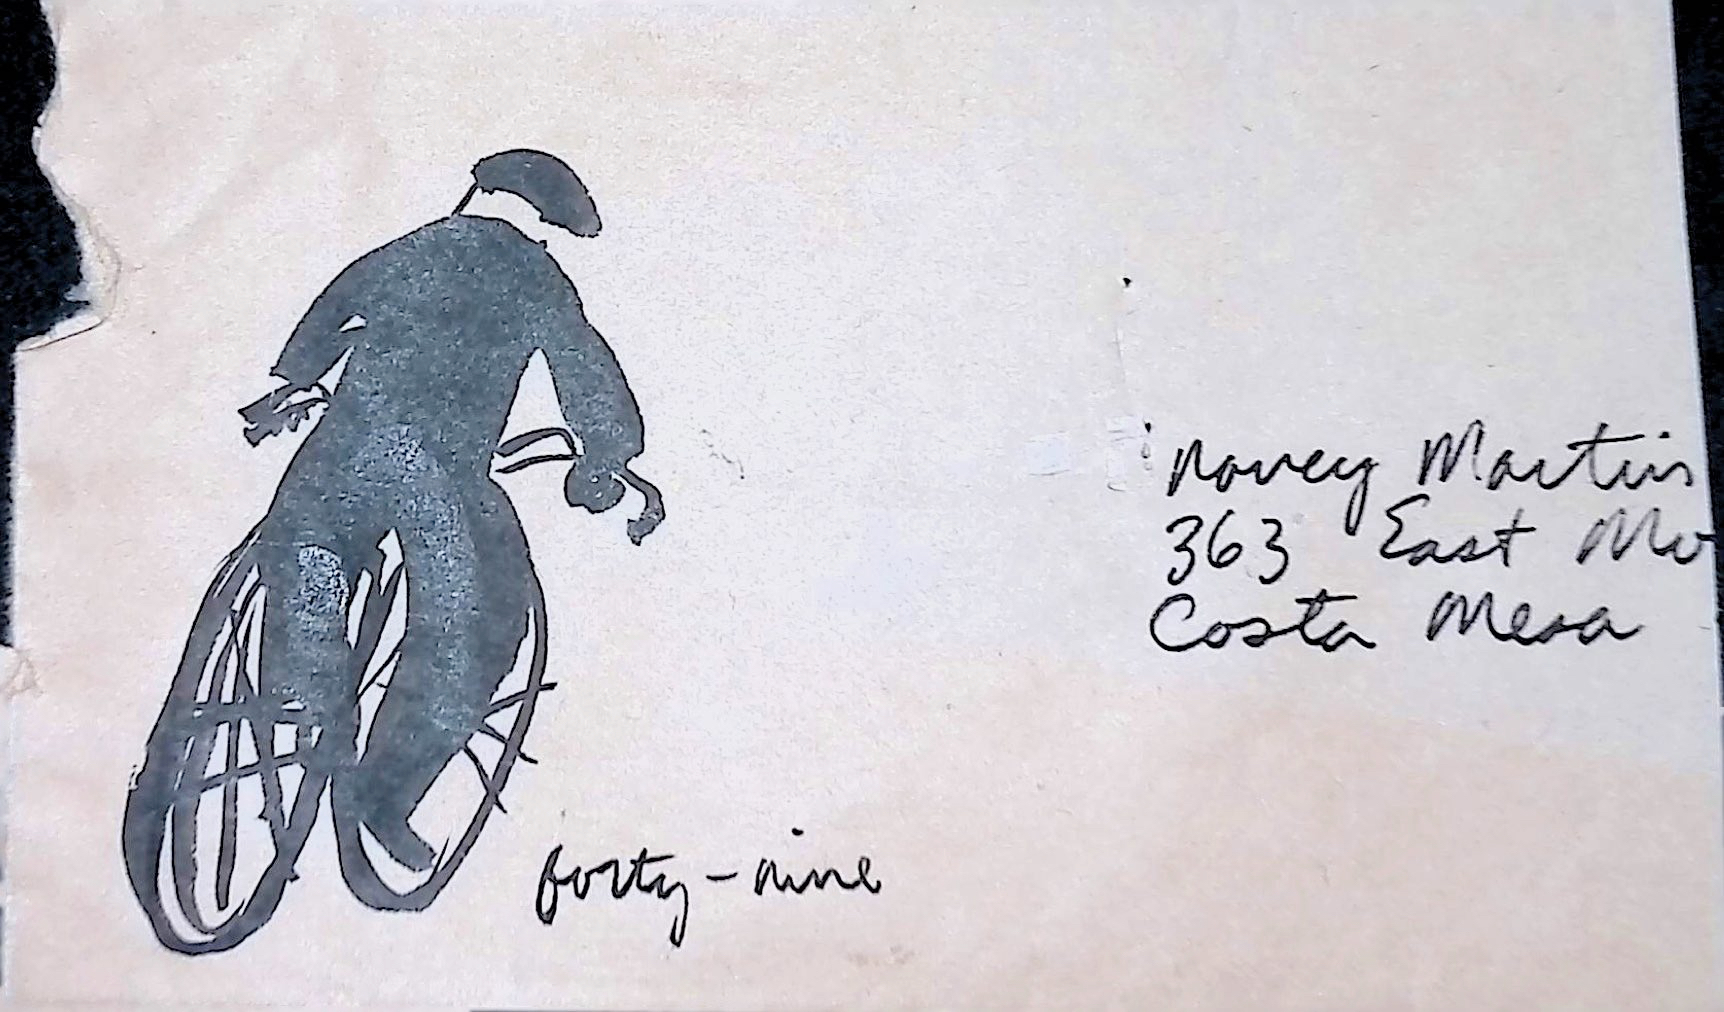 Nancy Martin
363 East
Costa Mesa
forty-nine